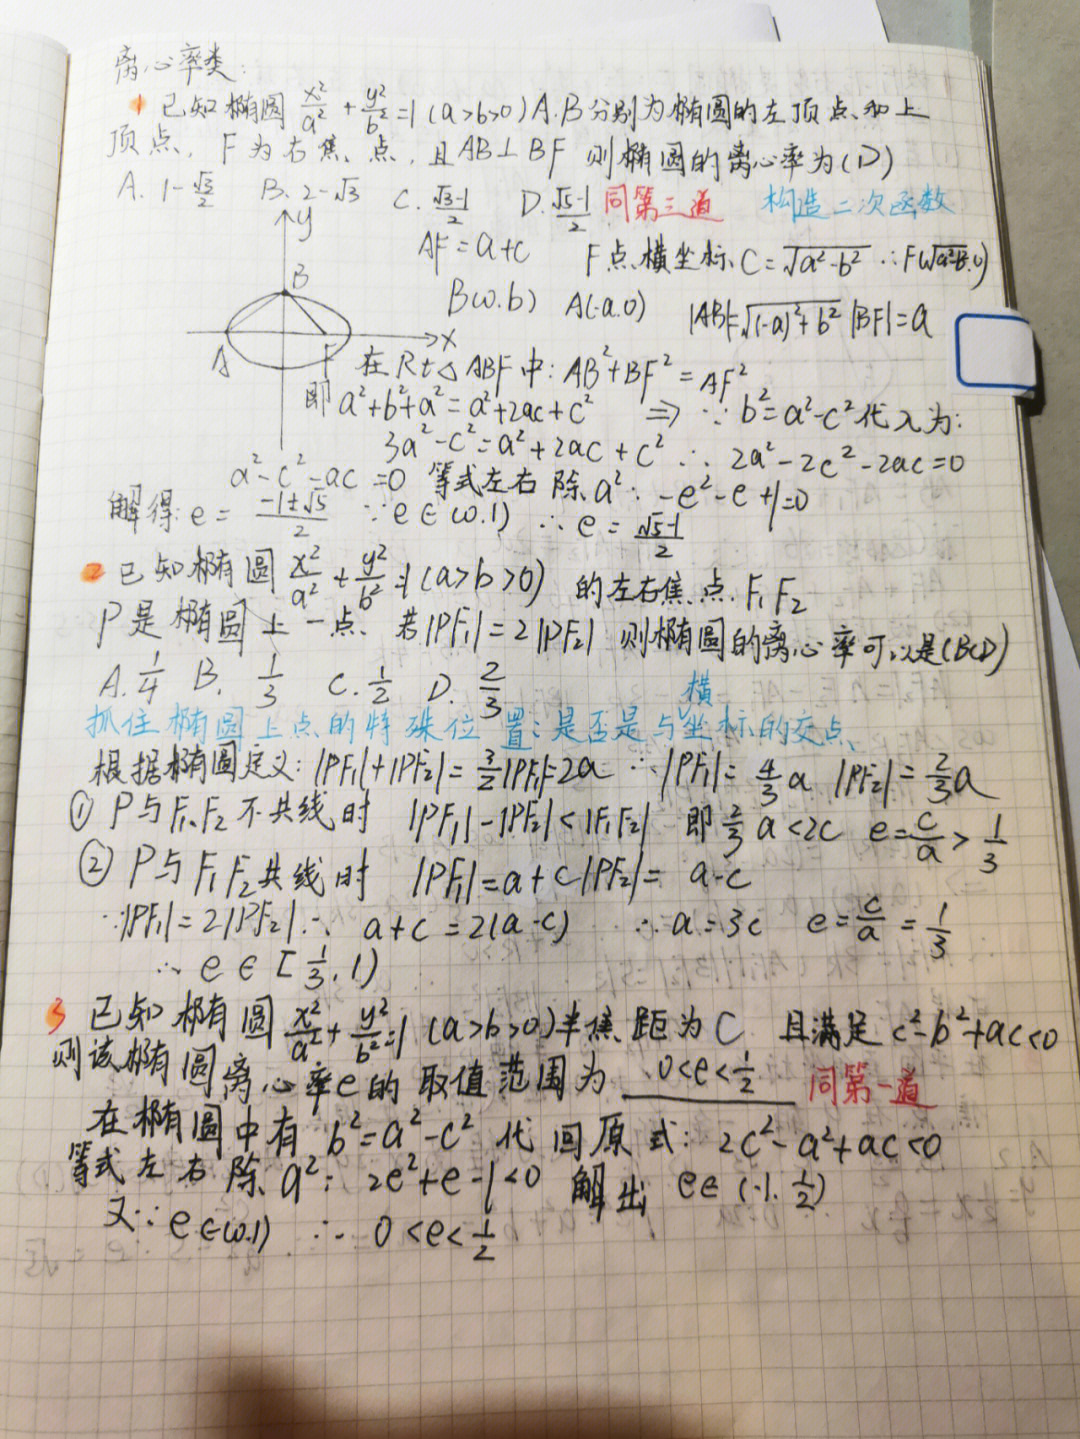 离心率类:
1 已知椭圆 x²/a² + y²/b² = 1 (a>b>0) A.B分别为椭圆的左顶点和上
顶点, F为右焦点, 且AB⊥BF 则椭圆的离心率为(D)
A. 1-√3/2 B. 2-√3 C. (√3-1)/2 D. (√5-1)/2 同第三道 构造二次函数
y
AF=a+c F点横坐标 C=√(a²-b²) ∴F(√(a²-b²).0)
B
B(0.b) A(-a.0) |AB|=√((-a)²+b²) |BF|=a
A F x
在Rt△ABF中: AB²+BF²=AF²
即a²+b²+a²=a²+2ac+c² ⇒ ∵b²=a²-c²代入为:
3a²-c²=a²+2ac+c² ∴ 2a²-2c²-2ac=0
a²-c²-ac=0 等式左右除a²: -e²-e+1=0
解得: e=(-1±√5)/2 ∵e∈(0.1) ∴e=(√5-1)/2
2 已知椭圆 x²/a² + y²/b² = 1 (a>b>0) 的左右焦点.F₁F₂
P是椭圆上一点, 若|PF₁|=2|PF₂| 则椭圆的离心率可以是(BCD)
A. 1/4 B. 1/3 C. 1/2 D. 2/3
横
抓住椭圆上点的特殊位置: 是否是与坐标的交点
根据椭圆定义: |PF₁|+|PF₂|=3/2|PF₁|=2a ∴|PF₁|=4/3a |PF₂|=2/3a
① P与F₁、F₂不共线时 |PF₁|-|PF₂|<|F₁F₂| 即2/3a<2c e=c/a>1/3
② P与F₁F₂共线时 |PF₁|=a+c |PF₂|=a-c
∵|PF₁|=2|PF₂| ∴ a+c=2(a-c) ∴a=3c e=c/a=1/3
∴ e∈[1/3, 1)
3 已知椭圆 x²/a² + y²/b² = 1 (a>b>0)半焦距为C 且满足c²-b²+ac<0
则该椭圆离心率e的取值范围为 0<e<1/2 同第一道
在椭圆中有 b²=a²-c² 代回原式: 2c²-a²+ac<0
等式左右除a²: 2e²+e-1<0 解出 e∈(-1.1/2)
又∵e∈(0.1) ∴ 0<e<1/2